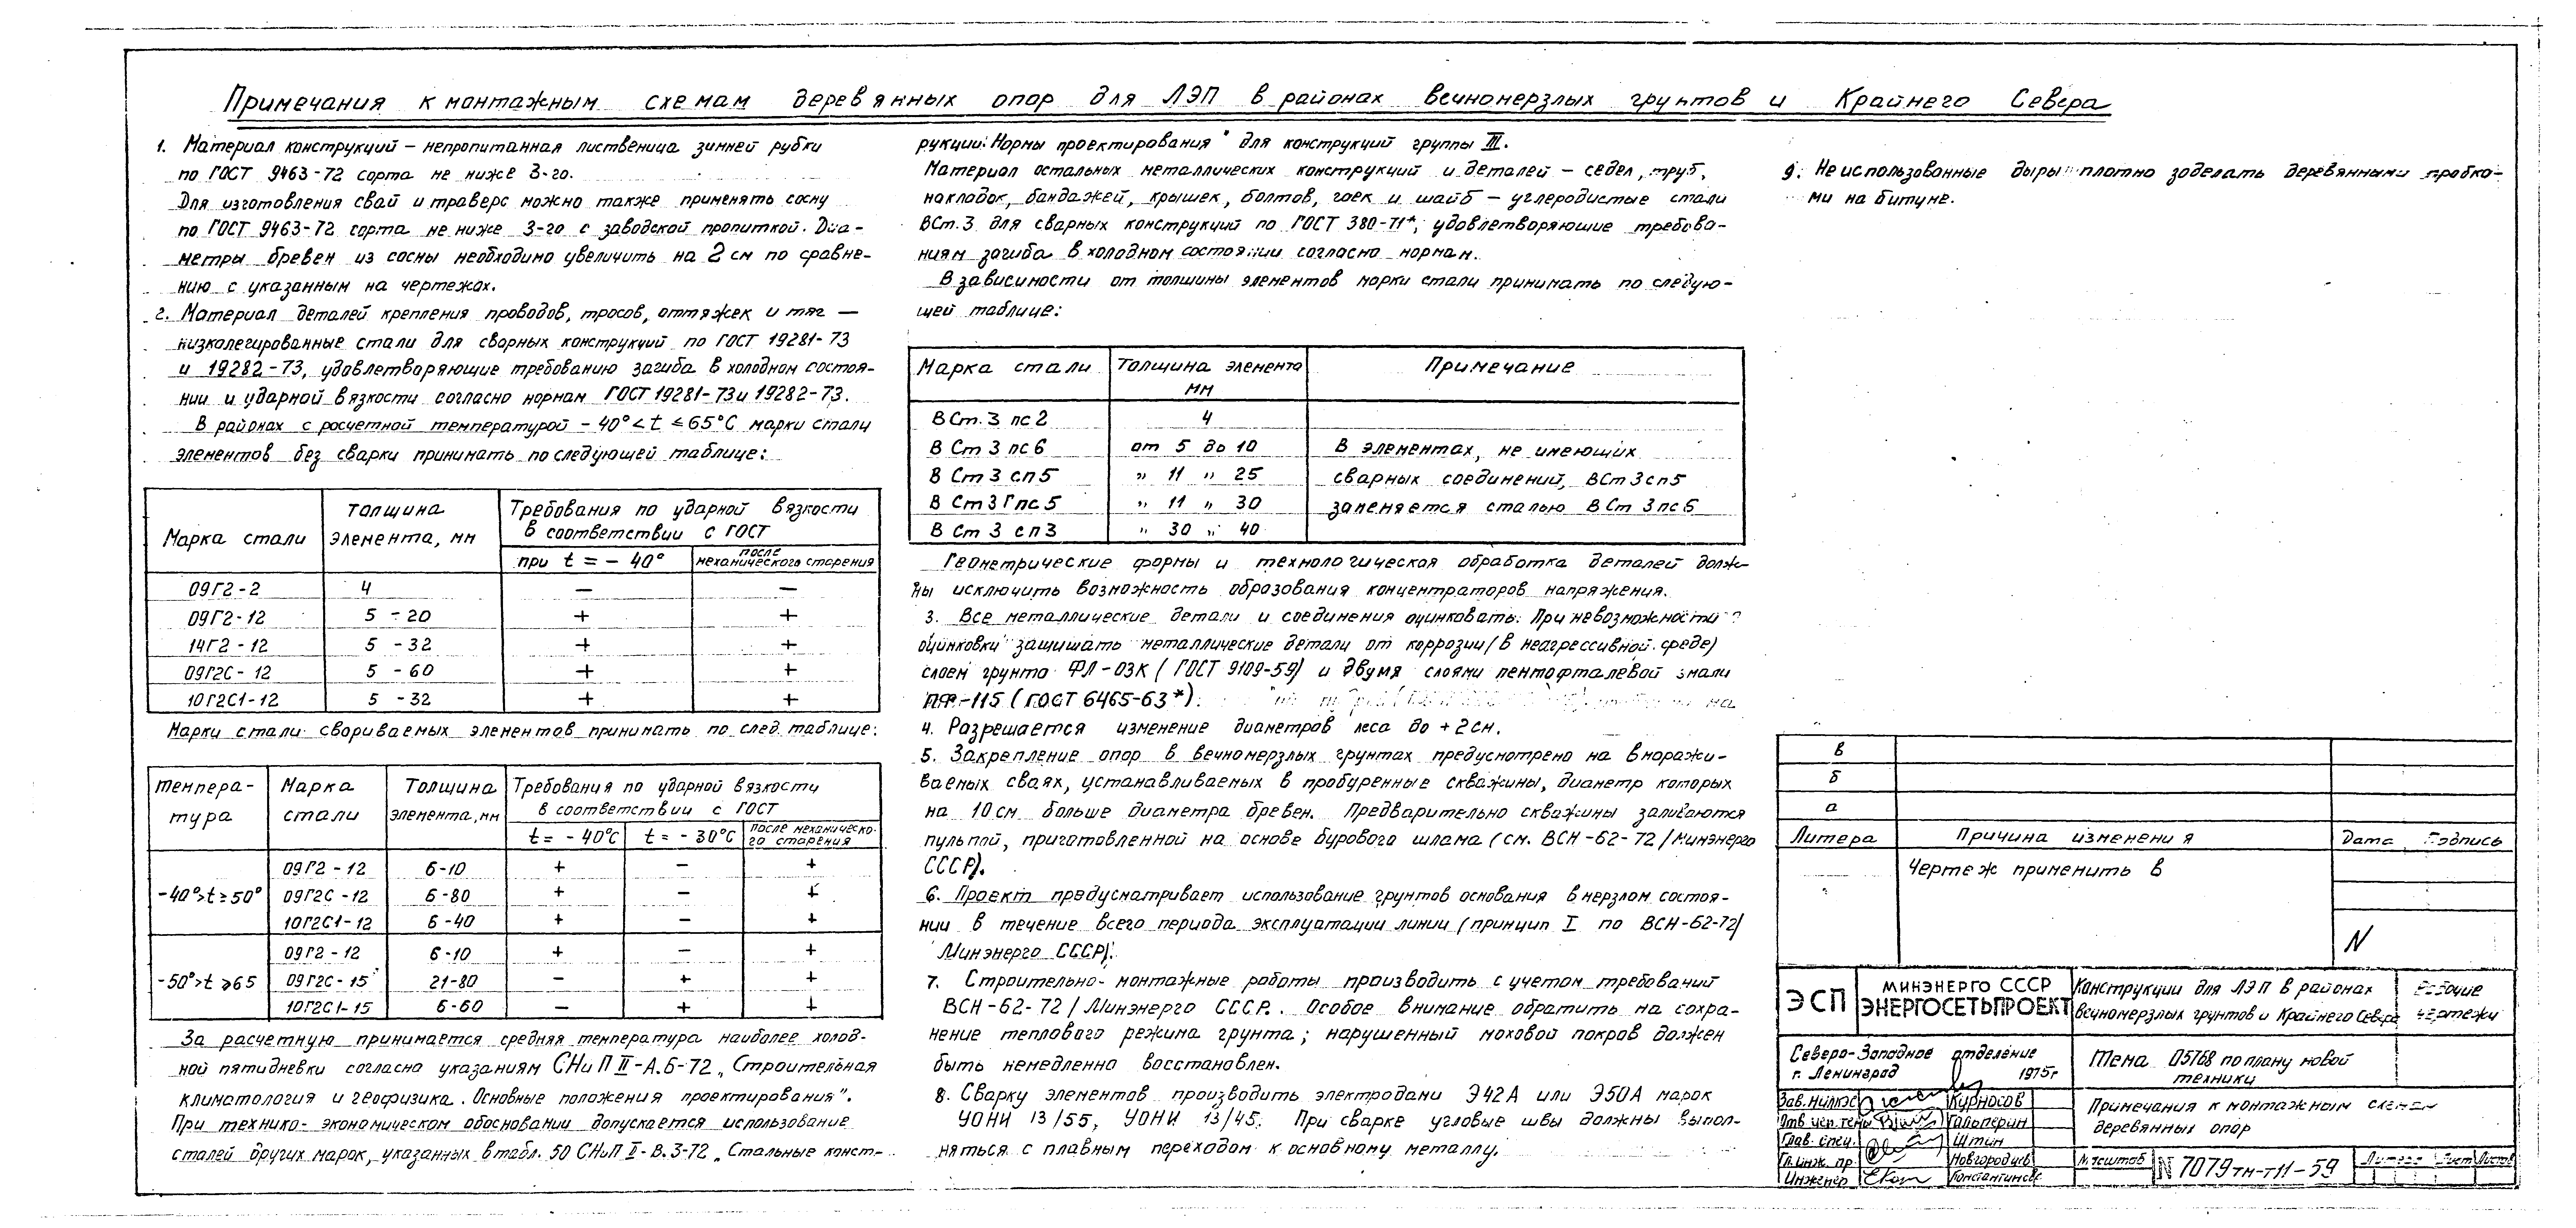 Примечания к монтажным схемам деревянных опор для ЛЭП в районах вечномерзлых грунтов и Крайнего Севера
1. Материал конструкций – непропитанная лиственица зимней рубки
по ГОСТ 9463-72 сорта не ниже 3-го.
Для изготовления свай и траверс можно также применять сосну
по ГОСТ 9463-72 сорта не ниже 3-го с заводской пропиткой. Диа-
метры бревен из сосны необходимо увеличить на 2 см по сравне-
нию с указанным на чертежах.
2. Материал деталей крепления проводов, тросов, оттяжек и тяг –
низколегированные стали для сварных конструкций по ГОСТ 19281-73
и 19282-73, удовлетворяющие требованию загиба в холодном состоя-
нии и ударной вязкости согласно нормам ГОСТ 19281-73 и 19282-73.
В районах с расчетной температурой -40° < t ≤ 65°С марки стали
элементов без сварки принимать по следующей таблице:
Марка стали
Толщина элемента, мм
Требования по ударной вязкости
в соответствии с ГОСТ
при t = - 40°
после механического старения
09Г2-2 4 – –
09Г2-12 5 - 20 + +
14Г2-12 5 - 32 + +
09Г2С-12 5 - 60 + +
10Г2С1-12 5 - 32 + +
Марки стали свариваемых элементов принимать по след. таблице:
Темпера-
тура
Марка
стали
Толщина
элемента, мм
Требования по ударной вязкости
в соответствии с ГОСТ
t = - 40°С t = - 30°С после механическо-
го старения
09Г2-12 6-10 + – +
-40°>t≥50° 09Г2С-12 6-80 + – +
10Г2С1-12 6-40 + – +
09Г2-12 6-10 + – +
-50°>t≥65 09Г2С-15 21-80 – + +
10Г2С1-15 6-60 – + +
За расчетную принимается средняя температура наиболее холод-
ной пятидневки согласно указаниям СНиП II-А.6-72 „Строительная
климатология и геофизика. Основные положения проектирования".
При технико-экономическом обосновании допускается использование
сталей других марок, указанных в табл. 50 СНиП II-В.3-72 „Стальные конст-
рукции. Нормы проектирования" для конструкций группы III.
Материал остальных металлических конструкций и деталей – седел, труб,
накладок, бандажей, крышек, болтов, гаек и шайб – углеродистые стали
ВСт.3 для сварных конструкций по ГОСТ 380-71*, удовлетворяющие требова-
ниям загиба в холодном состоянии согласно нормам.
В зависимости от толщины элементов марки стали принимать по следую-
щей таблице:
Марка стали
Толщина элемента
мм
Примечание
В Ст. 3 пс 2 4
В Ст 3 пс 6 от 5 до 10 В элементах, не имеющих
В Ст 3 сп 5 „ 11 „ 25 сварных соединений, ВСт 3 сп 5
В Ст 3 Гпс 5 „ 11 „ 30 заменяется сталью В Ст 3 пс 6
В Ст 3 сп 3 „ 30 „ 40
Геометрические формы и технологическая обработка деталей долж-
ны исключить возможность образования концентраторов напряжения.
3. Все металлические детали и соединения оцинковать. При невозможности
оцинковки защищать металлические детали от коррозии (в неагрессивной среде)
слоем грунта ФЛ-03К (ГОСТ 9109-59) и двумя слоями пентофталевой эмали
ПФ-115 (ГОСТ 6465-63*).
4. Разрешается изменение диаметров леса до + 2 см.
5. Закрепление опор в вечномерзлых грунтах предусмотрено на вморажи-
ваемых сваях, устанавливаемых в пробуренные скважины, диаметр которых
на 10 см больше диаметра бревен. Предварительно скважины заливаются
пульпой, приготовленной на основе бурового шлама (см. ВСН-62-72/Минэнерго
СССР).
6. Проект предусматривает использование грунтов основания в мерзлом состоя-
нии в течение всего периода эксплуатации линии (принцип I по ВСН-62-72/
Минэнерго СССР).
7. Строительно-монтажные работы производить с учетом требований
ВСН-62-72/Минэнерго СССР. Особое внимание обратить на сохра-
нение теплового режима грунта; нарушенный моховой покров должен
быть немедленно восстановлен.
8. Сварку элементов производить электродами Э42А или Э50А марок
УОНИ 13/55, УОНИ 13/45. При сварке угловые швы должны выпол-
няться с плавным переходом к основному металлу.
9. Неиспользованные дыры плотно заделать деревянными пробка-
ми на битуме.
в
б
а
Литера Причина изменения Дата Подпись
Чертеж применить в
N
ЭСП
МИНЭНЕРГО СССР
ЭНЕРГОСЕТЬПРОЕКТ
Конструкции для ЛЭП в районах
вечномерзлых грунтов и Крайнего Севера
Рабочие
чертежи
Северо-Западное отделение
г. Ленинград 1975г
Тема 05768 по плану новой
техники
Зав. НИЛКЭС Курносов
Отв. исп. темы Гальперин
Глав. спец. Штин
Гл. инж. пр. Новгородцев
Инженер Константинова
Примечания к монтажным схемам
деревянных опор
Масштаб N 7079тм-т11-59 Литера Лист Листов